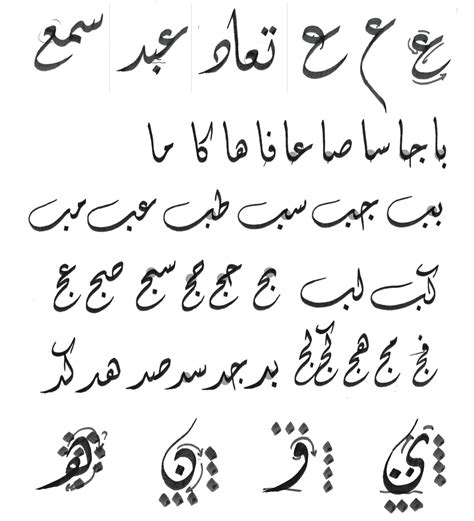 ع ع ع تعاد عبد سمع
با جا سا صا عا فا ها كا ما
بب جب سب طب عب مب
كب لب بج حج جج سج صج عج
فج مج هج كج لج بد جد سد صد هد كد
و ن